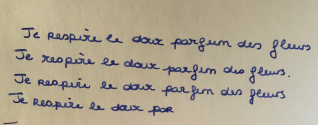 Je respire le doux parfum des fleurs
Je respire le doux parfum des fleurs.
Je respire le doux parfum des fleurs
Je respire le doux par